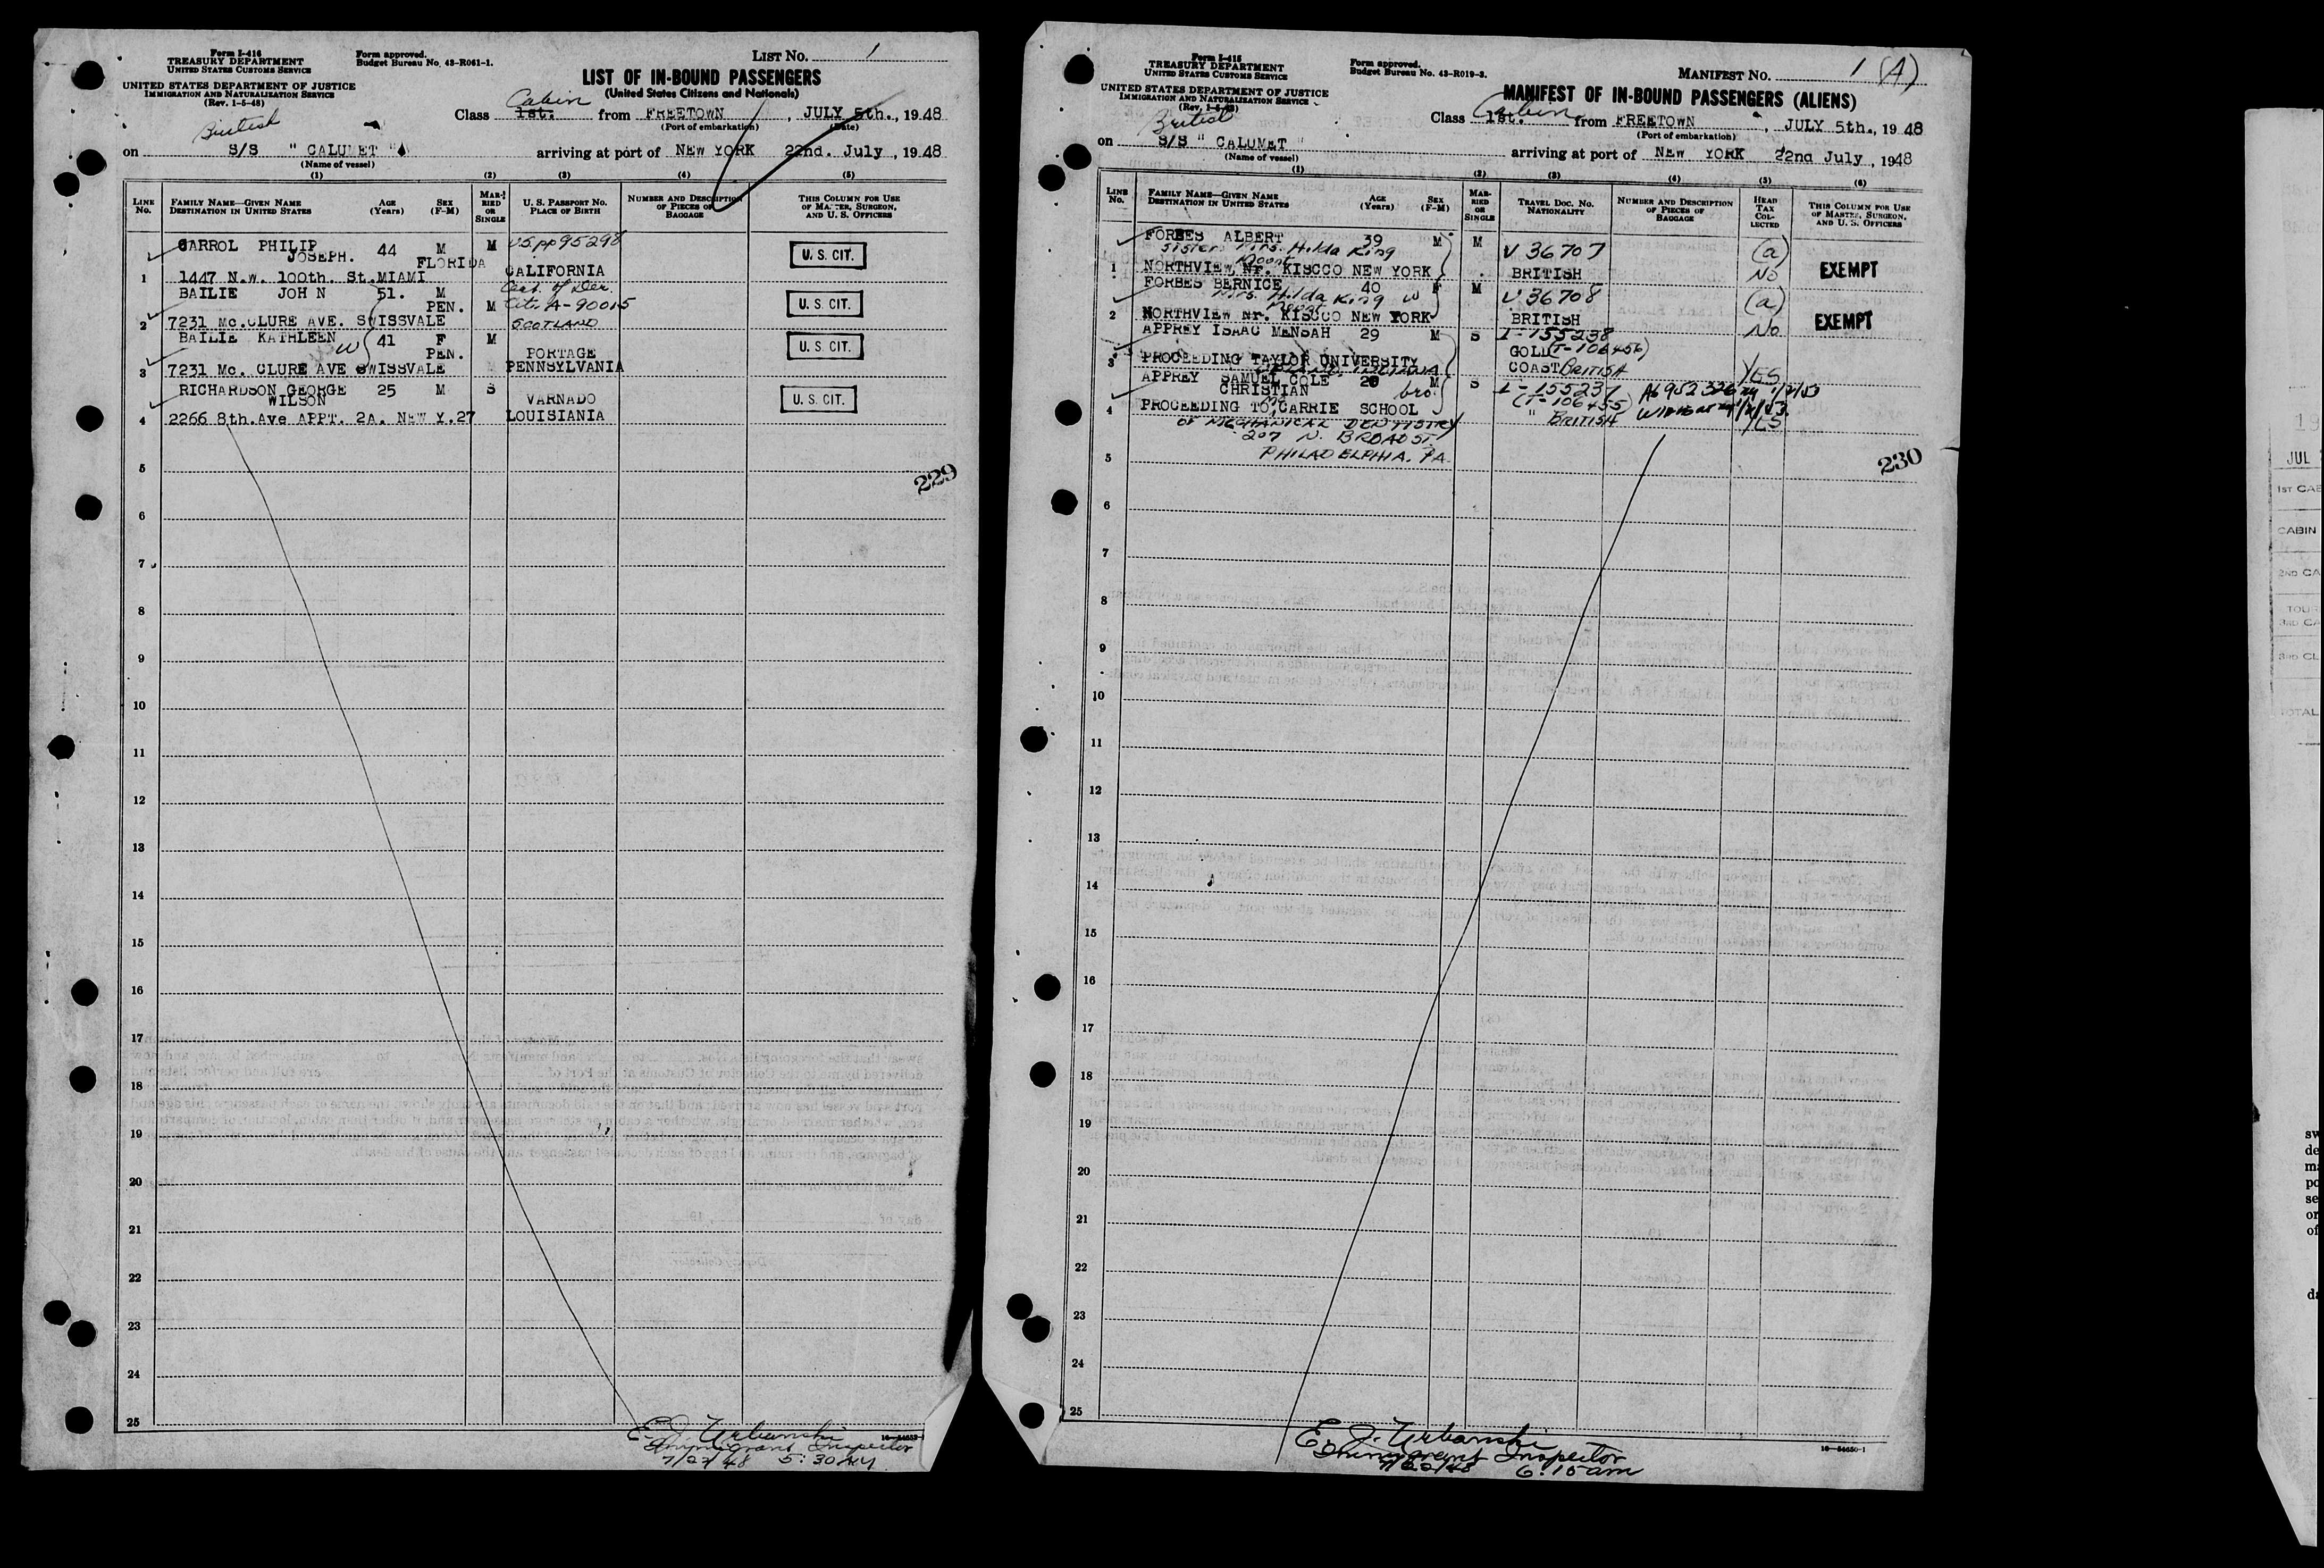 Form I-416
TREASURY DEPARTMENT
UNITED STATES CUSTOMS SERVICE
Form approved.
Budget Bureau No. 43-R061-1.
LIST NO. 1
UNITED STATES DEPARTMENT OF JUSTICE
IMMIGRATION AND NATURALIZATION SERVICE
(Rev. 1-5-48)
LIST OF IN-BOUND PASSENGERS
(United States Citizens and Nationals)
Cabin
Class 1st. from FREETOWN, JULY 5th., 1948
(Port of embarkation) (Date)
British
on S/S " CALUMET " arriving at port of NEW YORK 22nd. July, 1948
(Name of vessel)
(1) (2) (3) (4) (5)
LINE No. FAMILY NAME—GIVEN NAME DESTINATION IN UNITED STATES AGE (Years) SEX (F-M) MARRIED OR SINGLE U. S. PASSPORT NO. PLACE OF BIRTH NUMBER AND DESCRIPTION OF PIECES OF BAGGAGE THIS COLUMN FOR USE OF MASTER, SURGEON, AND U. S. OFFICERS
CARROL PHILIP JOSEPH. 44 M M US pp 95298 U. S. CIT.
1 1447 N.W. 100th. St. MIAMI FLORIDA CALIFORNIA
BAILIE JOHN 51. M M Cert. of Der. Cit. A-90015 U. S. CIT.
2 7231 Mc.CLURE AVE. SWISSVALE PEN. SCOTLAND
BAILIE KATHLEEN W 41 F M U. S. CIT.
3 7231 Mc. CLURE AVE SWISSVALE PEN. PORTAGE PENNSYLVANIA
RICHARDSON GEORGE WILSON 25 M S VARNADO U. S. CIT.
4 2266 8th.Ave APPT. 2A. NEW Y.27 LOUISIANIA
5
229
6
7
8
9
10
11
12
13
14
15
16
17
18
19
20
21
22
23
24
25
E. J. Urbanski
Immigrant Inspector
Form I-415
TREASURY DEPARTMENT
UNITED STATES CUSTOMS SERVICE
Form approved.
Budget Bureau No. 43-R019-3.
MANIFEST NO. 1 (A)
UNITED STATES DEPARTMENT OF JUSTICE
IMMIGRATION AND NATURALIZATION SERVICE
(Rev. 1-5-48)
MANIFEST OF IN-BOUND PASSENGERS (ALIENS)
Cabin
Class 1st. from FREETOWN, JULY 5th., 1948
(Port of embarkation)
British
on S/S " CALUMET " arriving at port of NEW YORK 22nd July, 1948
(Name of vessel)
(1) (2) (3) (4) (5) (6)
LINE No. FAMILY NAME—GIVEN NAME DESTINATION IN UNITED STATES AGE (Years) SEX (F-M) MARRIED OR SINGLE TRAVEL DOC. NO. NATIONALITY NUMBER AND DESCRIPTION OF PIECES OF BAGGAGE HEAD TAX COLLECTED THIS COLUMN FOR USE OF MASTER, SURGEON, AND U. S. OFFICERS
FORBES ALBERT 39 M M V 36707 (a)
Sister Mrs. Hilda King
Mount
1 NORTHVIEW Nr. KISCCO NEW YORK BRITISH No EXEMPT
FORBES BERNICE 40 F M V 36708 (a)
Mrs. Hilda King W
Mount
2 NORTHVIEW Nr. KISSCO NEW YORK BRITISH No EXEMPT
APPREY ISAAC MENSAH 29 M S I-155238
(T-106456)
3 PROCEEDING TAYLOR UNIVERSITY GOLD COAST BRITISH YES
INDIANA
APPREY SAMUEL COLE CHRISTIAN M bro. S I-155237
(T-106455)
4 PROCEEDING TO CARRIE SCHOOL " BRITISH YES
OF MECHANICAL DENTISTRY
207 N. BROAD ST.
5 PHILADELPHIA. PA
230
6
7
8
9
10
11
12
13
14
15
16
17
18
19
20
21
22
23
24
25
E. J. Urbanski
Immigrant Inspector
7/22/48 6:15 am
16-54650-1
JUL
1ST CAB
CABIN
2ND CA
TOUR
3RD CA
3RD CL
TOTAL